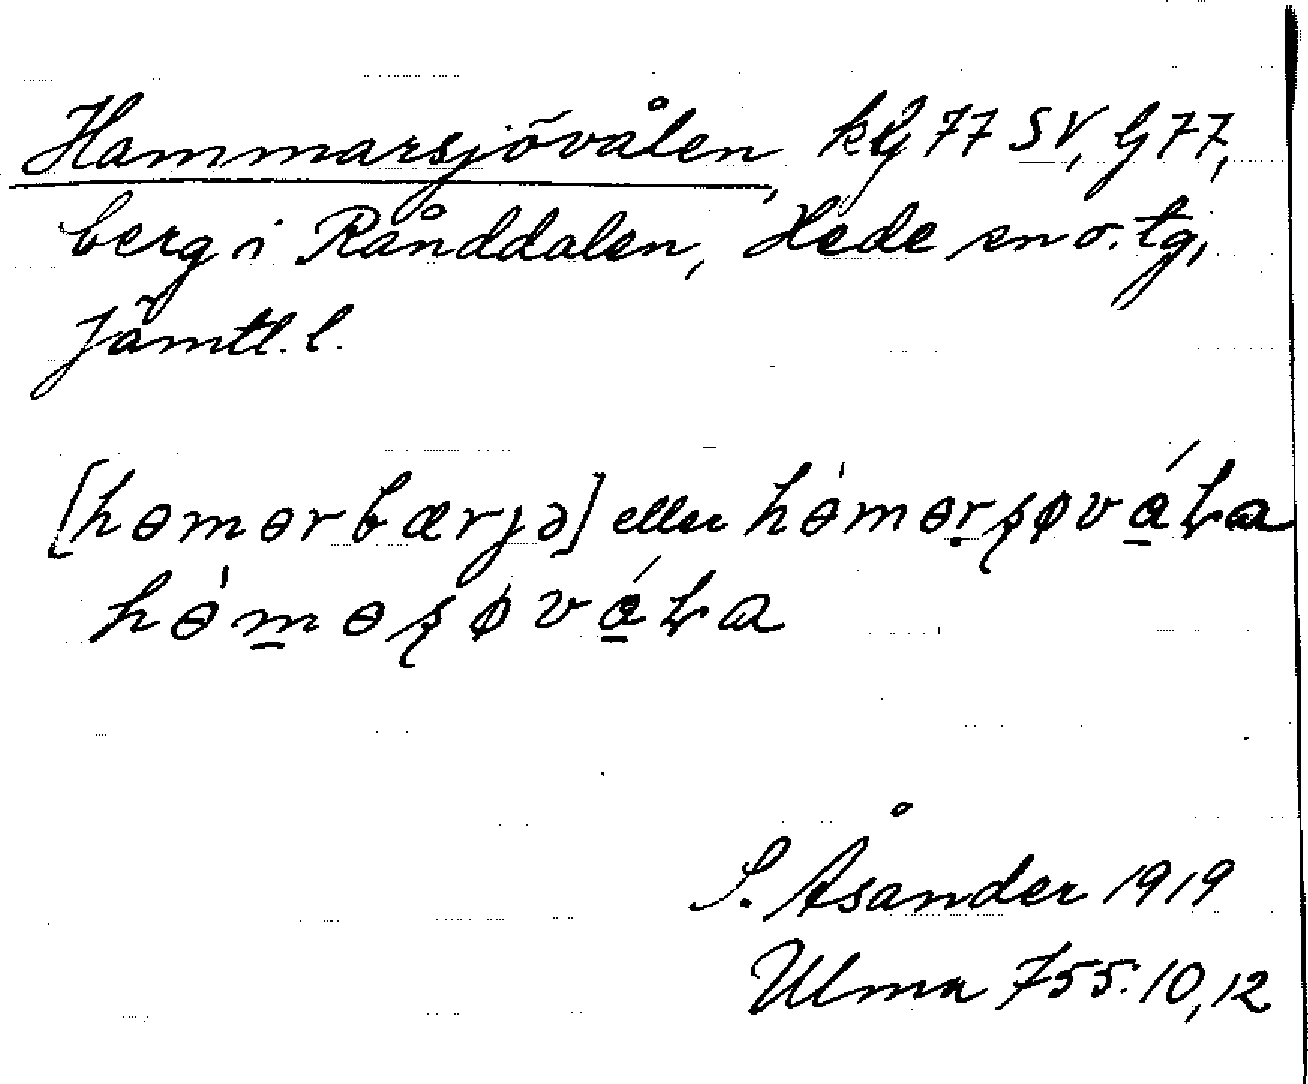 Hammarsjövålen, kbl 77 SV, G 77,
berg i Rånddalen, Hede sn o. tg,
Jämtl. l.
[hɵmɵrbærjə] eller hɵ̀mɵrʂøváɽa
hɵ̀mɵʂøváɽa
S. Åsander 1919
Ulma 755:10,12